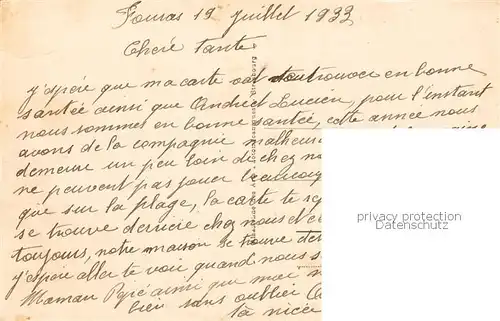 Fouras 19 Juillet 1933
Chere Tante
J'espère que ma carte va trouver en bonne
santée ainsi que André et Lucien, pour l'instant
nous sommes en bonne santée, cette année nous
avons de la compagnie malheur
demeure un peu loin de chez no
ne peuvent pas jouer beaucoup
que sur la plage, la carte te
se trouve derrière chez nous
toujours, notre maison se trouve der
j'espère aller te voir quand nous s
Maman Pépé ainsi que moi
bien sans oublier
ta nièce
privacy protection
Datenschutz